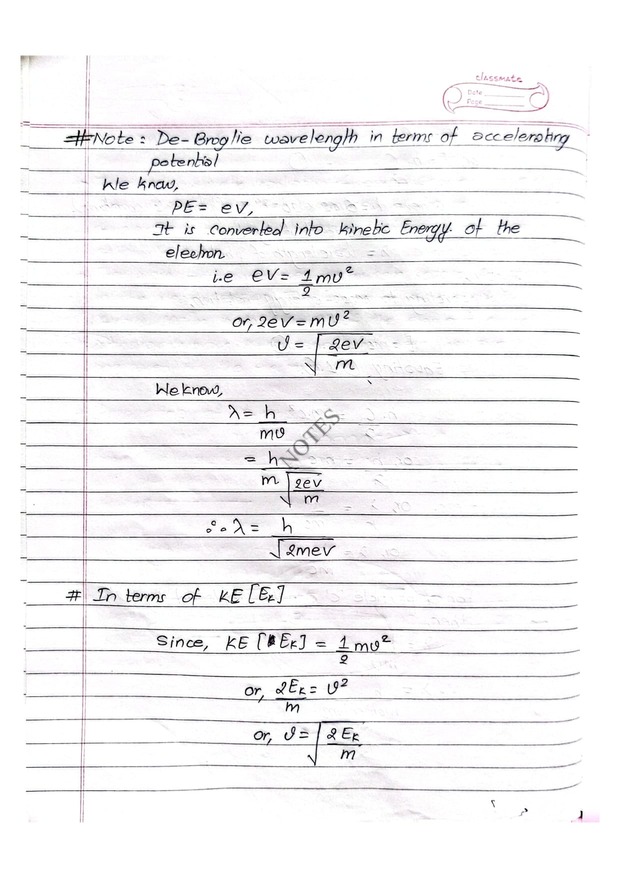 classmate
Date
Page
#Note: De-Broglie wavelength in terms of accelerating
potential
We know,
PE = eV,
It is converted into kinetic Energy of the
electron
i.e eV = 1/2 mv²
or, 2eV = mv²
v = √(2eV/m)
We know,
λ = h/mv
NOTES
= h/(m√(2eV/m))
∴ λ = h/√(2meV)
# In terms of KE [Eₖ]
Since, KE [Eₖ] = 1/2 mv²
or, 2Eₖ/m = v²
or, v = √(2Eₖ/m)